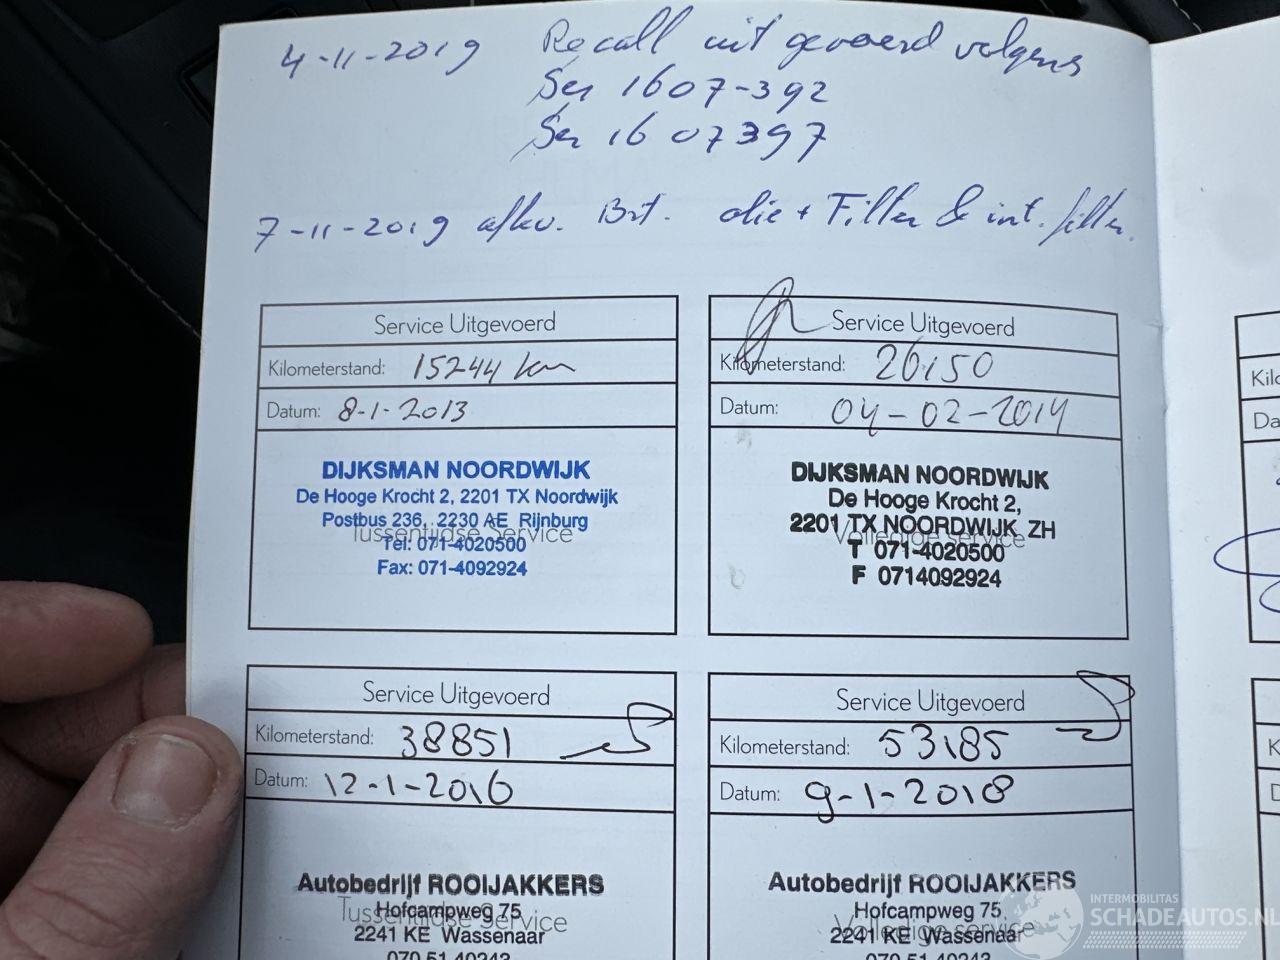 4-11-2019 Recall uit gevoerd volgens
Ser 1607-392
Ser 1607397
7-11-2019 afkv. Bnt. olie + Filter & int. filter.
Service Uitgevoerd
Kilometerstand: 15244 km
Datum: 8-1-2013
DIJKSMAN NOORDWIJK
De Hooge Krocht 2, 2201 TX Noordwijk
Postbus 236, 2230 AE Rijnburg
Tussentijdse Service
Tel: 071-4020500
Fax: 071-4092924
Service Uitgevoerd
Kilometerstand: 26150
Datum: 04-02-2014
DIJKSMAN NOORDWIJK
De Hooge Krocht 2,
2201 TX NOORDWIJK ZH
Volledige service
T 071-4020500
F 0714092924
Service Uitgevoerd
Kilometerstand: 38851
Datum: 12-1-2016
Autobedrijf ROOIJAKKERS
Hofcampweg 75
Tussentijdse Service
2241 KE Wassenaar
070 51 40243
Service Uitgevoerd
Kilometerstand: 53185
Datum: 9-1-2018
Autobedrijf ROOIJAKKERS
Hofcampweg 75
Volledige service
2241 KE Wassenaar
070 51 40243
Kilo
Da
K
D
INTERMOBILITAS
SCHADEAUTOS.NL